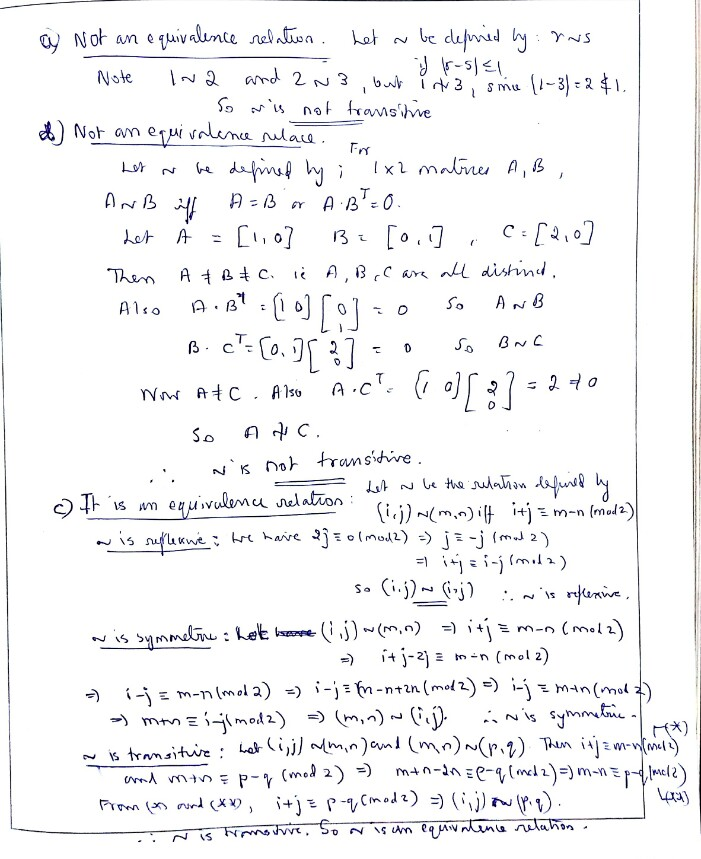 a) Not an equivalence relation. Let ~ be defined by : r~s
if |r-s| ≤ 1
Note 1~2 and 2~3, but 1≁3, since |1-3| = 2 ≰ 1.
So ~ is not transitive
b) Not an equivalence relace.
For
Let ~ be defined by ; 1x2 matrices A, B,
A~B iff A = B or A·Bᵀ = 0.
Let A = [1,0] B = [0,1] , C = [2,0]
Then A ≠ B ≠ C. ie A, B, C are all distinct.
Also A·Bᵀ = [1 0] [0 1] = 0 So A~B
B·Cᵀ = [0,1] [2 0] = 0 So B~C
Now A ≠ C. Also A·Cᵀ = [1 0] [2 0] = 2 ≠ 0
So A ≁ C.
∴ ~ is not transitive.
c) It is an equivalence relation: Let ~ be the relation defined by
(i,j) ~ (m,n) iff i+j ≡ m-n (mod 2)
~ is reflexive : We have 2j ≡ 0 (mod 2) ⇒ j ≡ -j (mod 2)
⇒ i+j ≡ i-j (mod 2)
so (i,j) ~ (i,j) ∴ ~ is reflexive.
~ is symmetric : (i,j) ~ (m,n) ⇒ i+j ≡ m-n (mod 2)
⇒ i+j-2j ≡ m-n (mod 2)
⇒ i-j ≡ m-n (mod 2) ⇒ i-j ≡ m-n+2n (mod 2) ⇒ i-j ≡ m+n (mod 2)
⇒ m+n ≡ i-j (mod 2) ⇒ (m,n) ~ (i,j). ∴ ~ is symmetric.
(*)
~ is transitive : Let (i,j) ~ (m,n) and (m,n) ~ (p,q). Then i+j ≡ m-n (mod 2)
and m+n ≡ p-q (mod 2) ⇒ m+n-2n ≡ p-q (mod 2) ⇒ m-n ≡ p-q (mod 2)
(**)
From (*) and (**), i+j ≡ p-q (mod 2) ⇒ (i,j) ~ (p,q).
∴ ~ is transitive. So ~ is an equivalence relation.